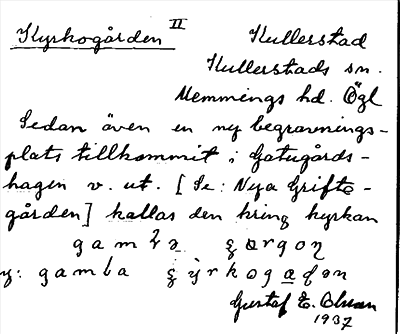 Kyrkogården II Kullerstad
Kullerstads sn.
Memmings hd. Ögl
Sedan även en ny begravnings-
plats tillkommit i Gatugårds-
hagen v. ut. [Se: Nya Grifte-
gården] kallas den kring kyrkan
y: gamba
Gustaf E. Olsson
1937